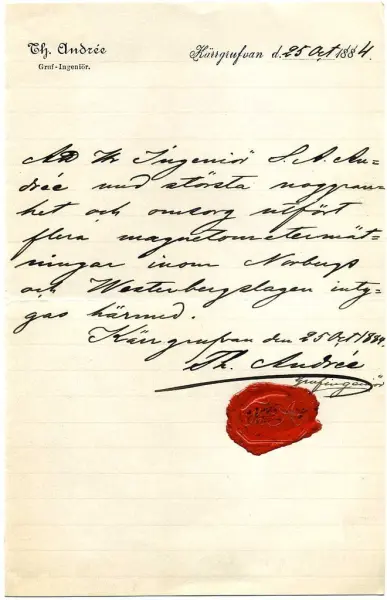 Th. Andrée
Graf-Ingeniör.
Kärrgrufvan d. 25 Oct 1884.
Att Hr Ingeniör S. A. An=
drée med största noggrann
het och omsorg utfört
flera magnetometermät=
ningar inom Norbergs
och Westerbergslagen inty=
gas härmed.
Kärrgrufvan den 25 Oct 1884.
Th. Andrée
Grafingeniör